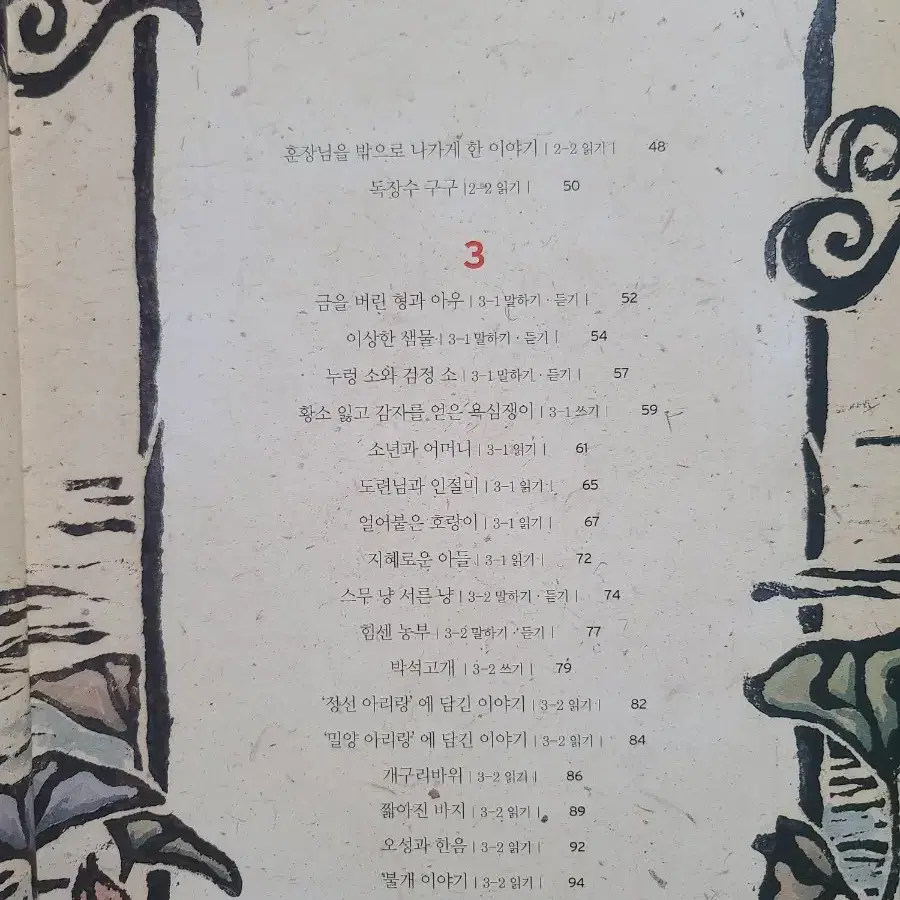 훈장님을 밖으로 나가게 한 이야기 | 2-2 읽기 | 48
독장수 구구 | 2-2 읽기 | 50
3
금을 버린 형과 아우 | 3-1 말하기 · 듣기 | 52
이상한 샘물 | 3-1 말하기 · 듣기 | 54
누렁 소와 검정 소 | 3-1 말하기 · 듣기 | 57
황소 잃고 감자를 얻은 욕심쟁이 | 3-1 쓰기 | 59
소년과 어머니 | 3-1 읽기 | 61
도련님과 인절미 | 3-1 읽기 | 65
얼어붙은 호랑이 | 3-1 읽기 | 67
지혜로운 아들 | 3-1 읽기 | 72
스무 냥 서른 냥 | 3-2 말하기 · 듣기 | 74
힘센 농부 | 3-2 말하기 · 듣기 | 77
박석고개 | 3-2 쓰기 | 79
'정선 아리랑' 에 담긴 이야기 | 3-2 읽기 | 82
'밀양 아리랑' 에 담긴 이야기 | 3-2 읽기 | 84
개구리바위 | 3-2 읽기 | 86
짧아진 바지 | 3-2 읽기 | 89
오성과 한음 | 3-2 읽기 | 92
불개 이야기 | 3-2 읽기 | 94